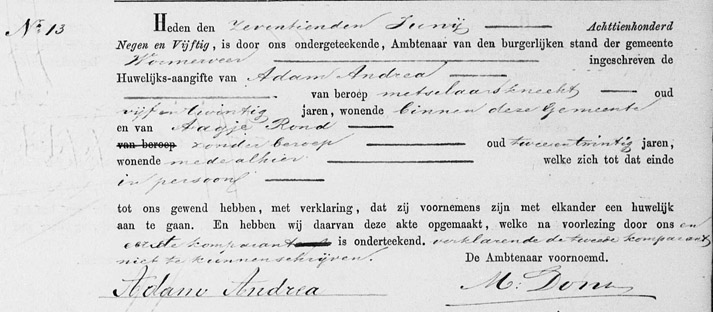 No 13
Heden den zeventienden Junij Achttienhonderd
Negen en Vijftig, is door ons ondergeteekende, Ambtenaar van den burgerlijken stand der gemeente
Wormerveer ingeschreven de
Huwelijks-aangifte van Adam Andrea
van beroep metselaarsknecht oud
vijf en twintig jaren, wonende binnen deze Gemeente
en van Aagje Rond
van beroep zonder beroep oud tweeentwintig jaren,
wonende mede alhier welke zich tot dat einde
in persoon
tot ons gewend hebben, met verklaring, dat zij voornemens zijn met elkander een huwelijk
aan te gaan. En hebben wij daarvan deze akte opgemaakt, welke na voorlezing door ons en
eerste komparant is onderteekend. verklarende de tweede komparant
niet te kunnen schrijven.
De Ambtenaar voornoemd.
Adam Andrea M: Dons